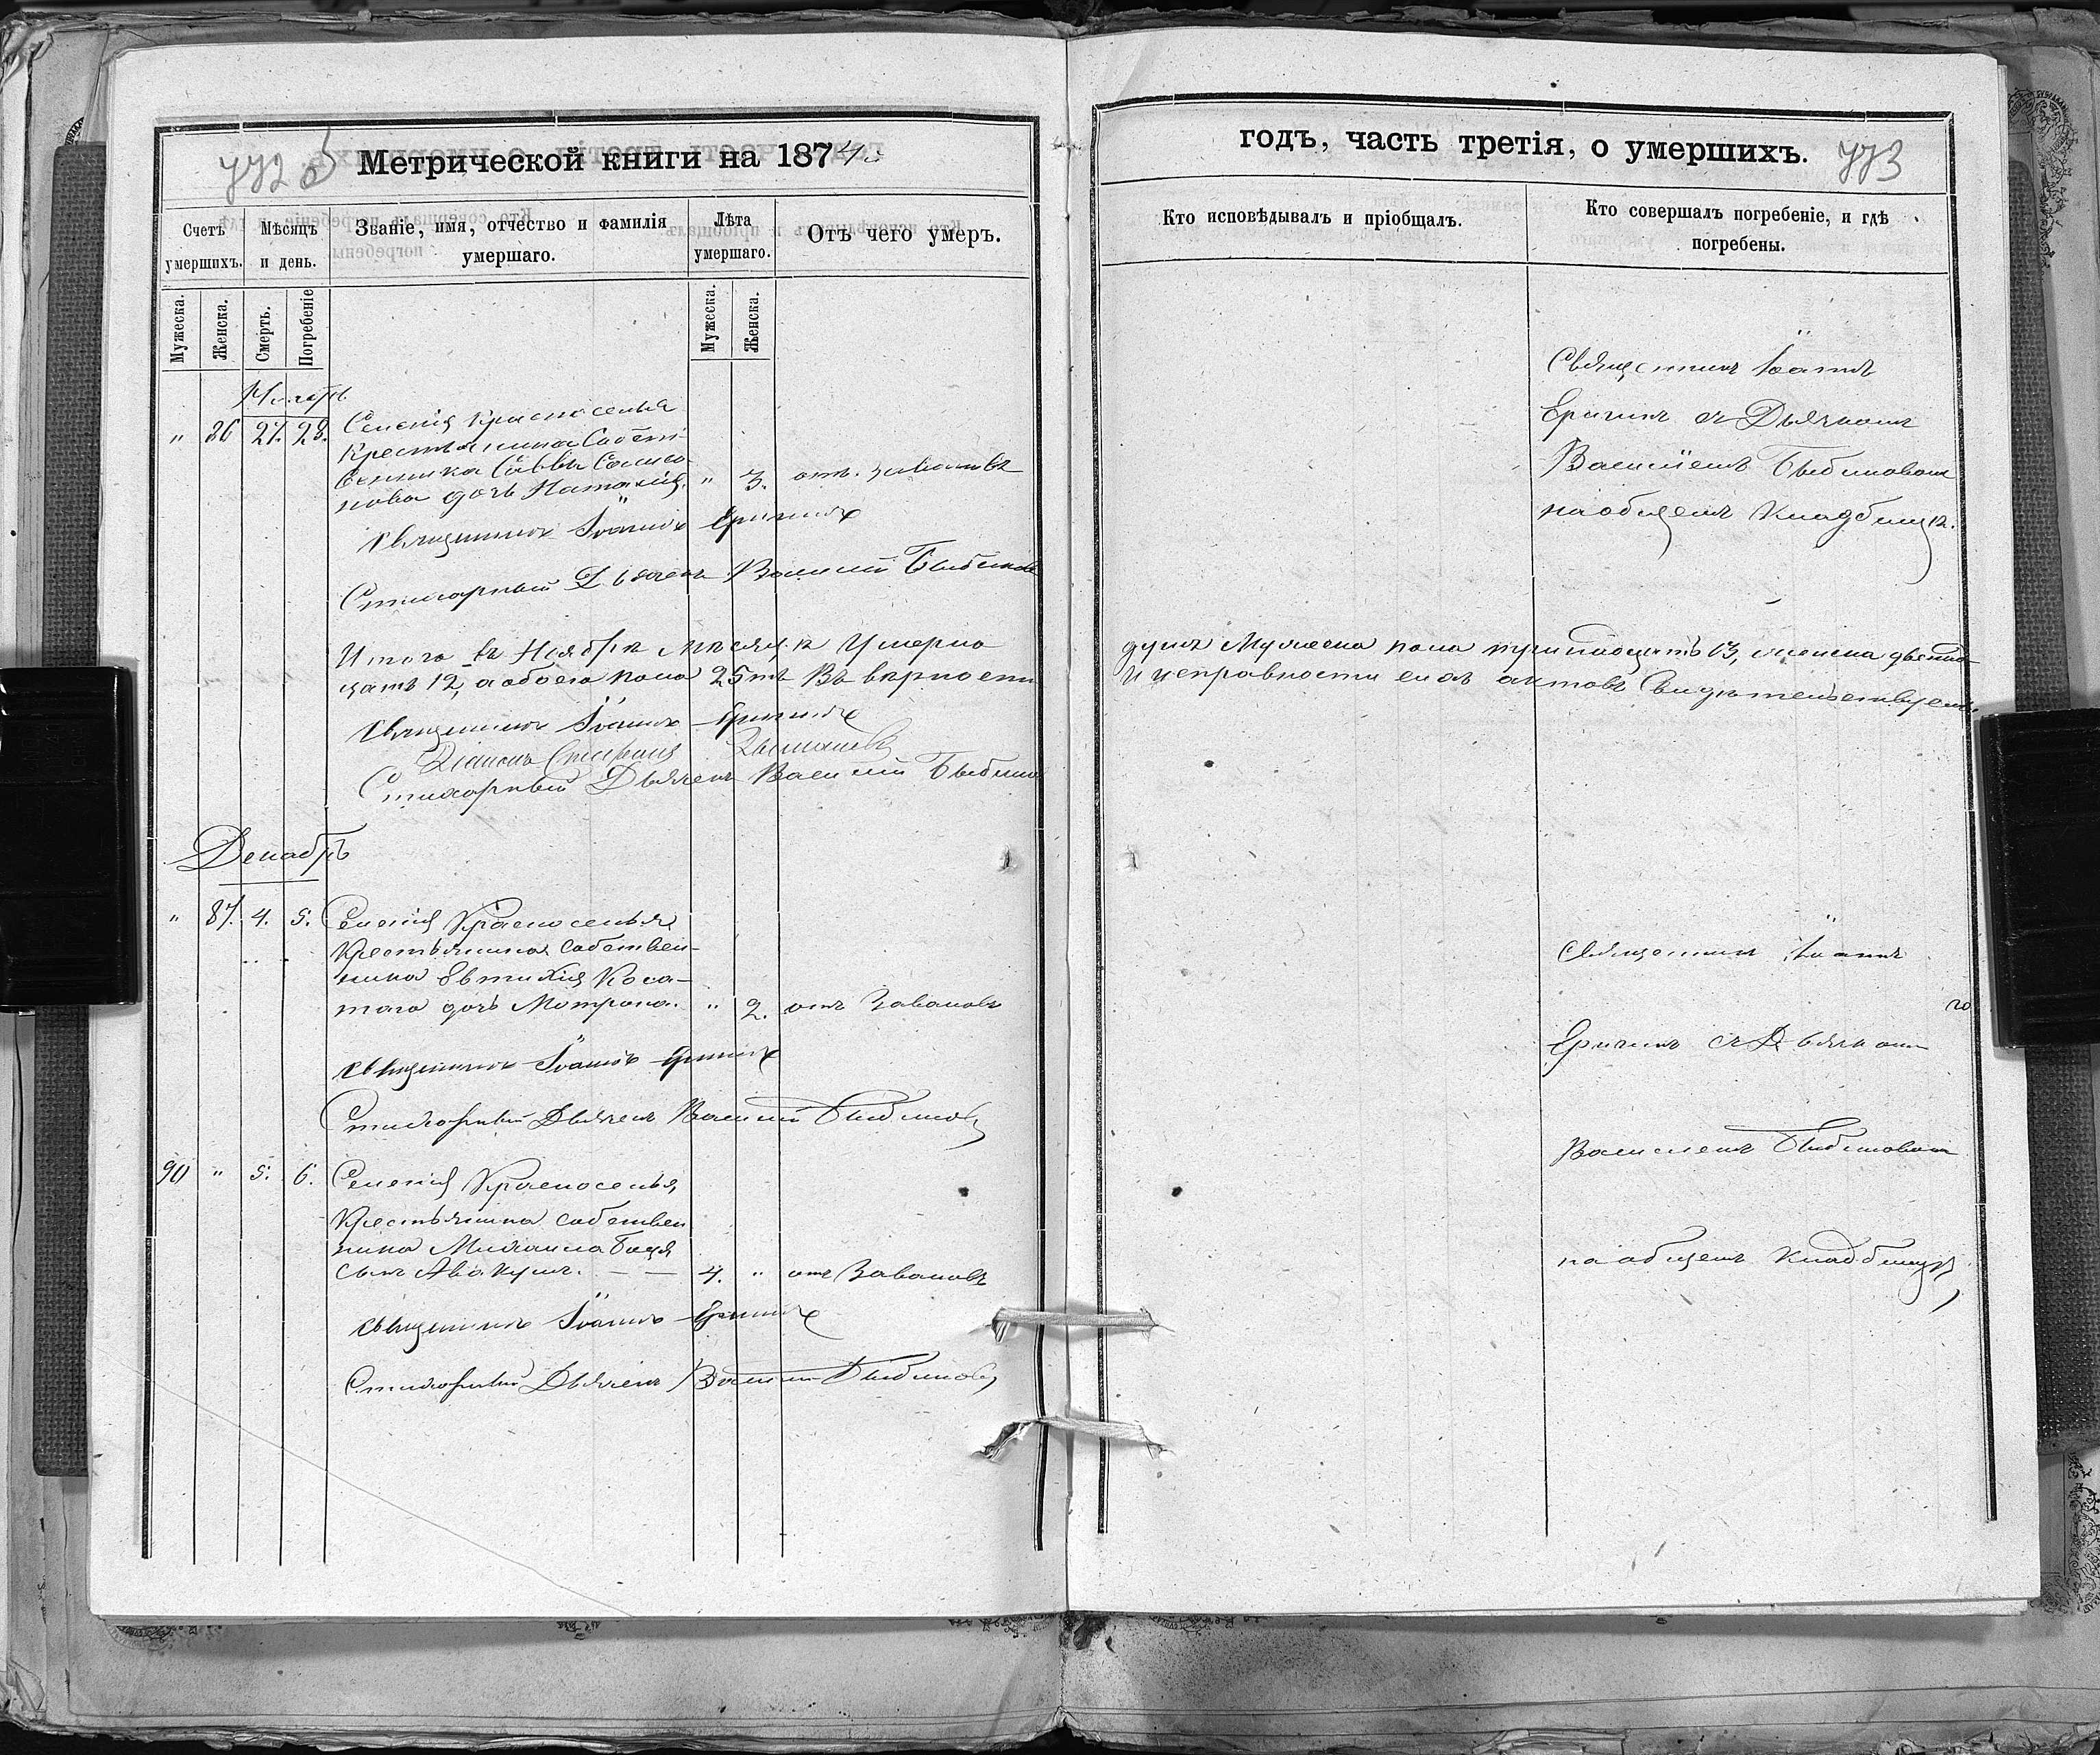 772
Метрической книги на 1874
Счетъ умершихъ.
Мѣсяцъ и день.
Званіе, имя, отчество и фамилія умершаго.
Лѣта умершаго.
Отъ чего умеръ.
Мужеска.
Женска.
Смерть.
Погребеніе
Мужеска.
Женска.
Ноябрь
" 86 27. 28. Селенія Красноселья
Крестьянина Собст-
венника Саввы
дочь Наталія. " 3. отъ
Священникъ Іоаннъ
Стихарный Дьячекъ Василій
Итого въ Ноябрѣ мѣсяцѣ Умерло
цать 12, а обоего пола 25ть Въ вѣрности
Священникъ Іоаннъ
Діаконъ Стефанъ
Стихарный Дьячекъ Василій
Декабрь
" 87. 4. 5. Селенія Красноселья
Крестьянина Собствен-
ника Евтихія Коса-
таго дочь Мотрона. " 2. отъ
Священникъ Іоаннъ
Стихарный Дьячекъ Василій
90 " 5. 6. Селенія Красноселья
Крестьянина собствен
ника Михаила Баця
сынъ Авакумъ. — — 4. " отъ
Священникъ Іоаннъ
Стихарный Дьячекъ Василій
годъ, часть третія, о умершихъ.
773
Кто исповѣдывалъ и пріобщалъ.
Кто совершалъ погребеніе, и гдѣ погребены.
Священникъ Іоаннъ
съ Дьячкомъ
Василіемъ
на общемъ Кладбищѣ.
душъ Мужеска пола тринадцать 13, женска двенад-
И исправности сихъ актовъ Свидѣтельствуемъ.
Священникъ Іоаннъ
съ Дьячкомъ
Василіемъ
на общемъ Кладбищѣ